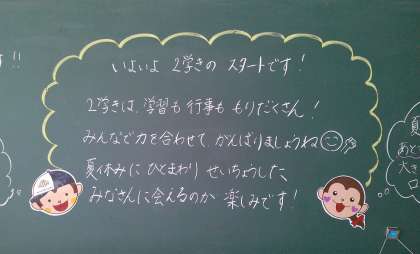 いよいよ 2学きの スタートです!
2学きは、学習も 行事も もりだくさん!
みんなで力を合わせて、がんばりましょうね
夏休みに ひとまわり せいちょうした、
みなさんに会えるのが 楽しみです!
す!!
夏
あと
大き